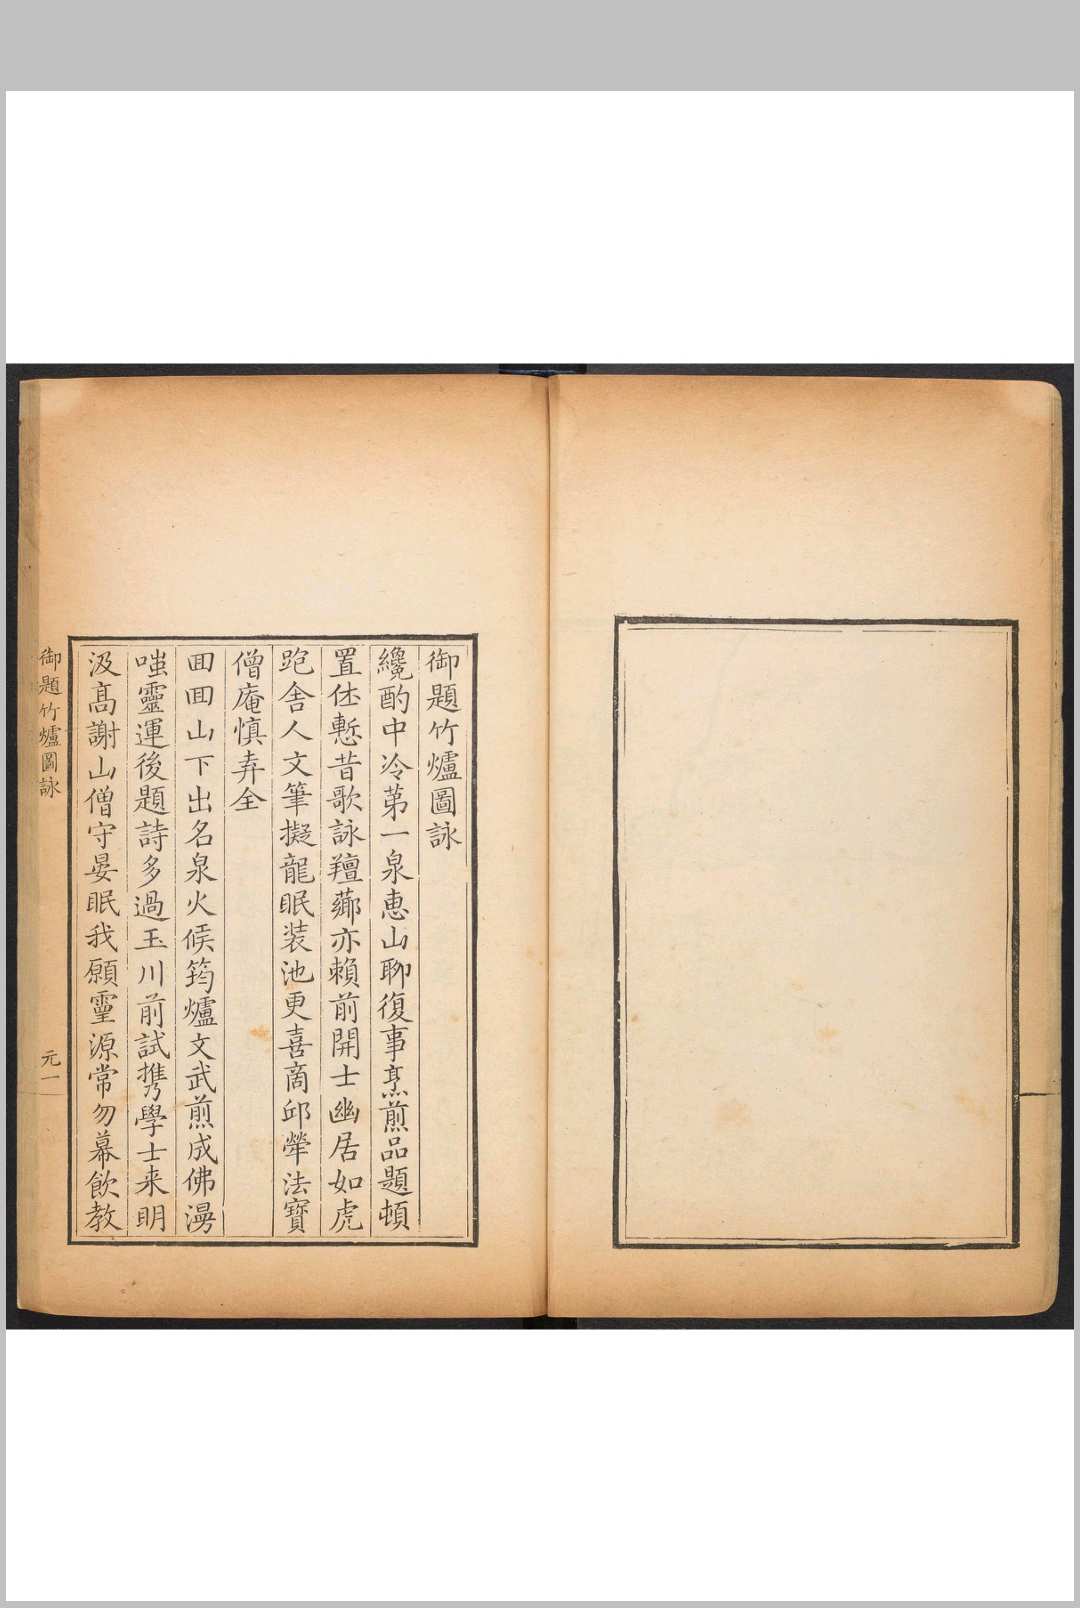 御題竹爐圖詠
纔酌中冷苐一泉惠山聊復事烹煎品題頓
置休慙昔歌詠羶薌亦賴前開士幽居如虎
跑舍人文筆擬龍眠装池更喜商邱犖法寳
僧庵慎弆全
囬囬山下出名泉火候筠爐文武煎成佛漫
嗤靈運後題詩多過玉川前試攜學士来明
汲髙謝山僧守晏眠我願靈源常勿幕飲教
御題竹爐圖詠
元一